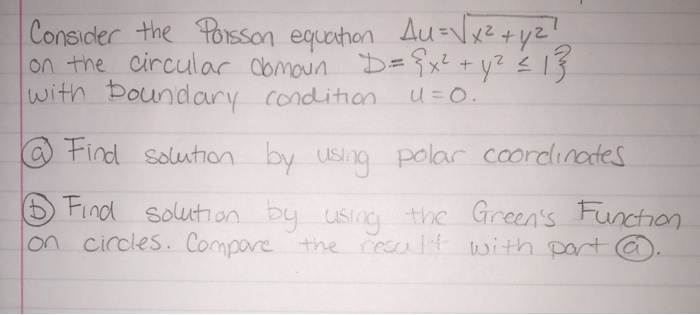 Consider the Poisson equation Δu=√x² + y²
on the circular domain D = {x² + y² ≤ 1}
with boundary condition u = 0.
ⓐ Find solution by using polar coordinates
ⓑ Find solution by using the Green's Function
on circles. Compare the result with part ⓐ.